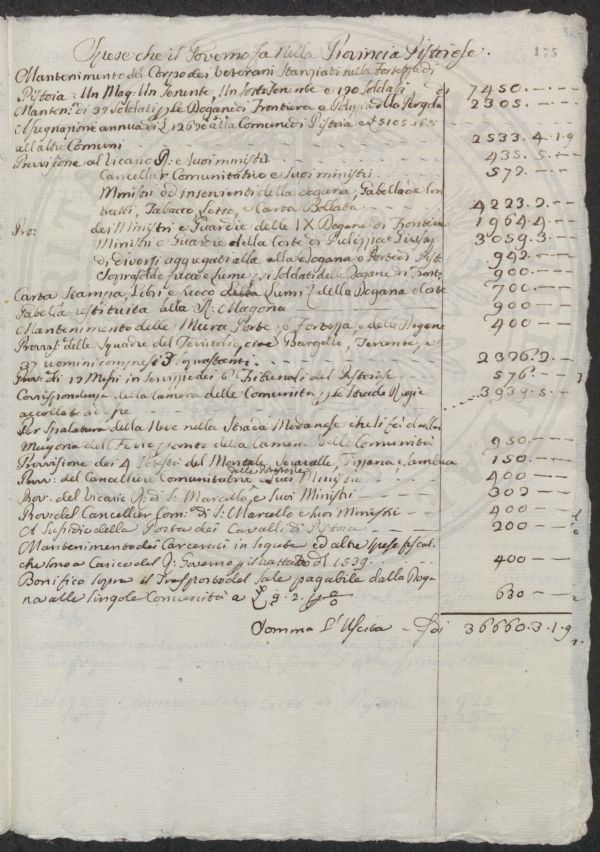 175
Spese che il Governo fa nella Provincia Pistoiese.
Mantenimento del Corpo dei Veterani Stanziati nella Fortezza di
Pistoia. Un Mag: Un Tenente, Un Sotto Tenente e 190 Soldati di 7450. — . —
Manten.° di 37 Soldati p le Dogane di Frontiera e Polveriera della Pergola 2305. — . —
Assegnazione annua di £ 12690 alla Comune di Pistoia e £ 5105.16.5
all'altre Comuni 2533.4.1.9
Provisione al Vicario R: e Suoi ministri 435.5. —
Cancellier Comunitativo e Suoi ministri. 572. — —
Ministri ed inservienti della Dogana, Gabella de Con
tratti, Tabacco, Lotto, e Carta Bollata 4223.2. —
Pro: dei Ministri e Guardie delle IX Dogane di Frontiera 1964.4. —
Ministri e Guardie della Corte di 3059.3. —
di diversi aggregati alla Dogana e Porte di Pist. 942. —
Soprasoldo fuoco e Lume p i Soldati delle Dogane di Front. 900. — —
Carta Stampa, Libri e fuoco Lumi p della Dogana e Corte 700. — —
Gabella restituita alla R. Magona 900 — —
Mantenimento delle Mura Porte e Fortezza, e delle Dogane 400 — —
Provvis. delle Squadre del Territorio, cioè Bargello, Tenente, e
37 uomini compresi 3 2376.2. —
Prov. di 12 Messi in Servizio dei 6 Tribunali del Pistoiese 576. —
Corrispondenza della Camera delle Comunità p le Strade Regie
accollate 3939.5. —
Per Spalatura della Neve nella Strada Modanese che si fa dalla
Magona dell Ferro p conto della Camera delle Comunità 950. — —
Provisione dei 4 Potestà del Montale, Seravalle, Tizzana, e Lamporecchio 150. — —
Prov: del Cancelliere Comunitativo delle e Suoi Ministri 400 — —
Prov. del Vicario R: di S: Marcello, e Suoi Ministri 302 — —
Prov: del Cancellier Com:° di S: Marcello e Suoi Ministri 400 — —
A Susidio della Posta dei Cavalli di Pistoia 200 — —
Mantenimento dei Carcerati in Segreta ed altre spese fiscal.
che sono a Carico del R: Governo p il trattato dl 1539. 400 — —
Bonifico sopra il Trasporto del Sale pagabile dalla Doga
na alle Singole Comunità a £ 9.2. 630 — —
Somma L'Uscita — Sdi 36660.3.1.9